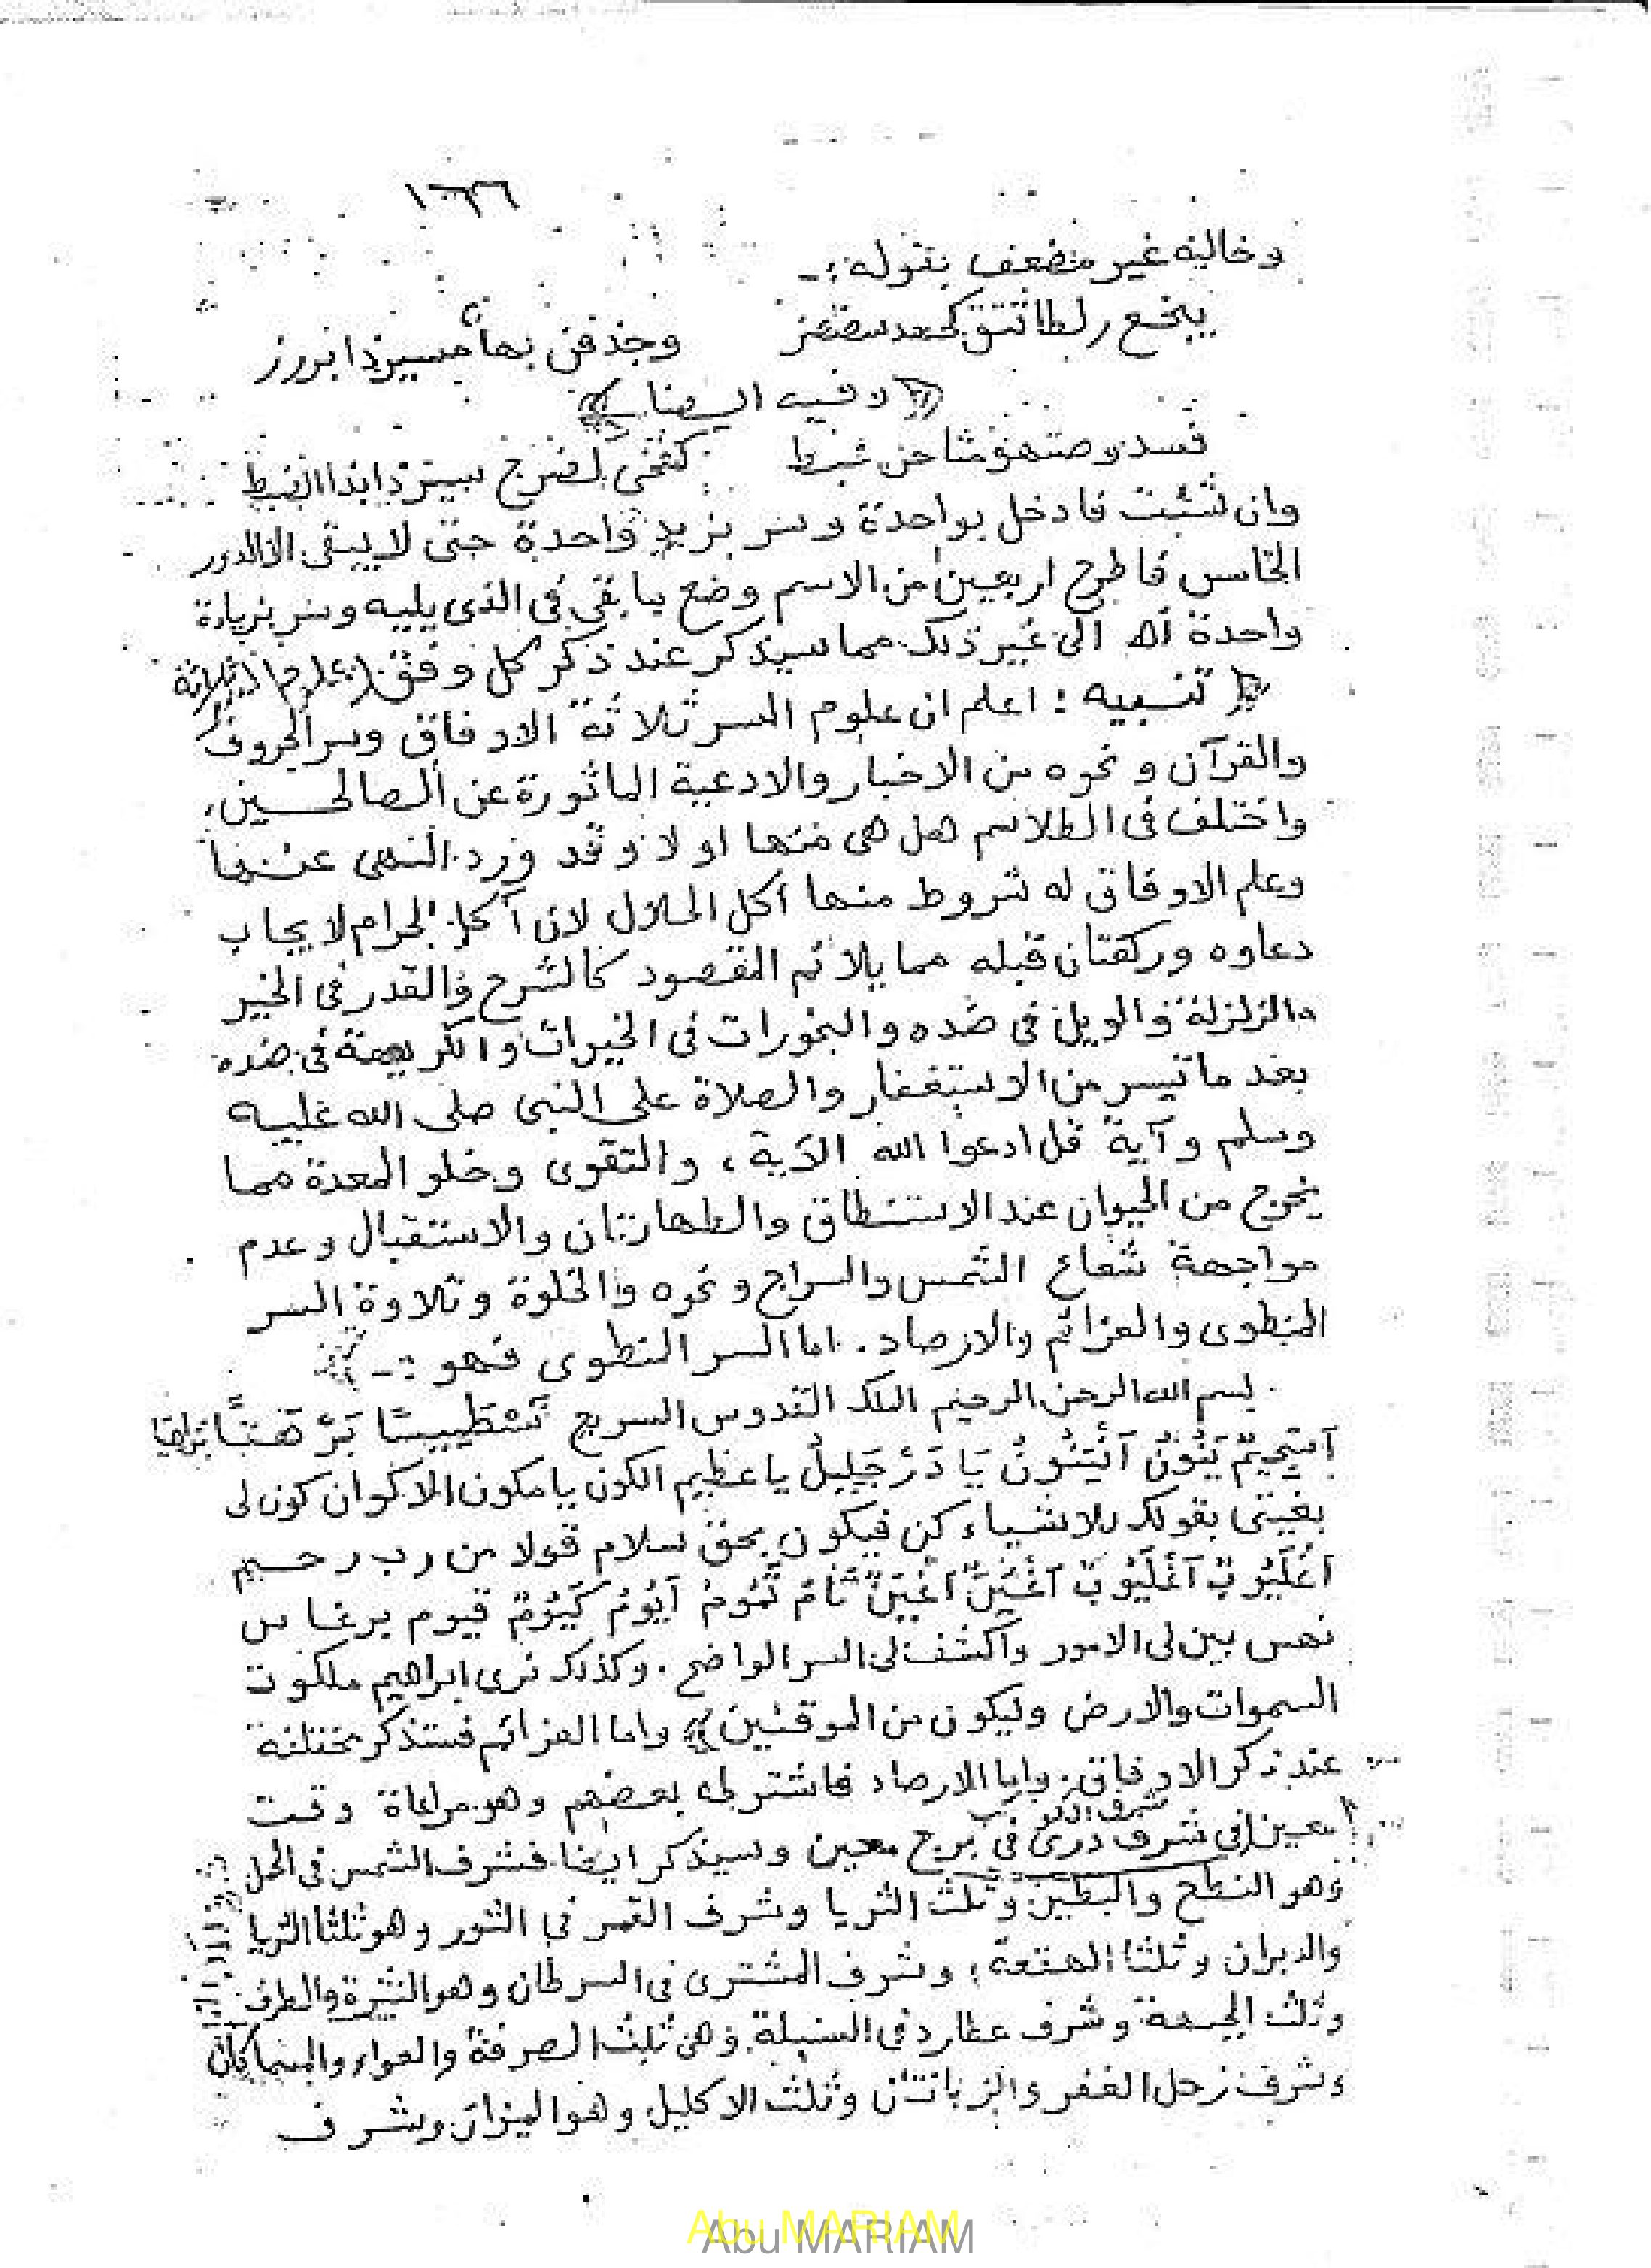 وخاليه غير منضعف بقوله :-
وان شئت فادخل بواحدة وسر بزيد واحدة حتى لا يبقى الا الدور
الخامس فاطرح اربعين من الاسم وضع ما بقى فى الذى يليه وسر بزيادة
واحدة اه الى غير ذلك مما سيذكر عند ذكر كل وفق (علوم السر ثلاثة
تنبيه : اعلم ان علوم السر ثلاثة الاوفاق وسر الحروف
والقرآن ونحوه من الاخبار والادعية الماثورة عن الصالحين،
واختلف فى الطلاسم هل هى منها اولا وقد ورد النهى عنها
وعلم الاوفاق له شروط منها اكل الحلال لان آكل الحرام لا يجاب
دعاوه وركعتان قبله مما يلائم المقصود كالشرح والقدر فى الخير
والزلزلة والويل فى ضده والبخورات فى الخيرات والكريهة فى ضده
بعد ما تيسر من الاستغفار والصلاة على النبى صلى الله عليه
وسلم وآية قل ادعوا الله الآية، والتقوى وخلو المعدة مما
يخرج من الحيوان عند الاستنطاق والطهارتان والاستقبال وعدم
مواجهة شعاع الشمس والسراج ونحوه والخلوة وتلاوة السر
المنطوى والعزائم والارصاد. اما السر المنطوى فهو :-
بسم الله الرحمن الرحيم الملك القدوس السريع
يا عظيم الكون يا مكون الاكوان كون لى
بغيتى بقولك للاشياء كن فيكون بحق سلام قولا من رب رحيم
قيوم برغاس
نهس بين لى الامور واكشف لى السر الواضح. وكذلك نرى ابراهيم ملكوت
السموات والارض وليكون من الموقنين) واما العزائم فستذكر مختلفة
عند ذكر الاوفاق. واما الارصاد فاشترطه بعضهم وهو مراعاة وقت
معين فى شرف درى فى برج معين وسيذكر ايضا فشرف الشمس فى الحمل
وهو النطح والبطين وثلث الثريا وشرف القمر فى الثور وهو ثلثا الثريا
والدبران وثلثا الهقعة، وشرف المشترى فى السرطان وهو النثرة والطرف
وثلث الجبهة وشرف عطارد فى السنبلة وهى ثلث الصرفة والعواء والسماكان
وشرف زحل الغفر والزبانتان وثلث الاكليل وهو الميزان وشرف
Abu MARIAM
Abu MARIAM